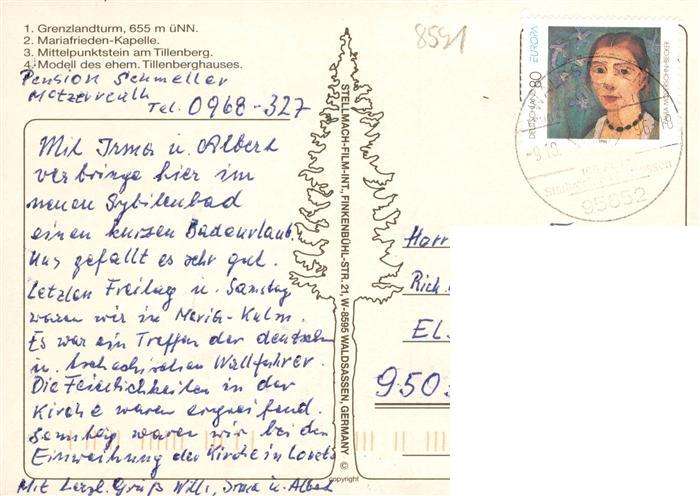 1. Grenzlandturm, 655 m üNN.
2. Mariafrieden-Kapelle.
3. Mittelpunktstein am Tillenberg.
4. Modell des ehem. Tillenberghauses.
Pension Schmeller
Tel. 0968-327
Mit Irma u. Albert
verbringe hier im
neuen Sybilenbad
einen kurzen Badeurlaub.
Uns gefällt es sehr gut.
Letzten Freitag u. Samstag
waren wir in Maria-Kulm.
Es war ein Treffen der deutschen
u. tschechischen Wallfahrer.
Die Feierlichkeiten in der
Kirche waren ergreifend.
Sonntag waren wir bei der
Einweihung der Kirche in
Mit herzl. Gruß Willi, Irma u. Albert
STELLMACH-FILM-INT., FINKENBÜHL-STR. 21, W-8595 WALDSASSEN, GERMANY ©
copyright
8591
EUROPA
DEUTSCHLAND 80
95652
Rich.
9503